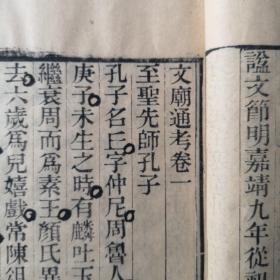 諡文節明嘉靖九年從祀
文廟通考卷一
至聖先師孔子
孔子名丘字仲尼周魯人
庚子未生之時有麟吐玉
繼衰周而為素王顏氏異
去六歲為兒嬉戲常陳俎